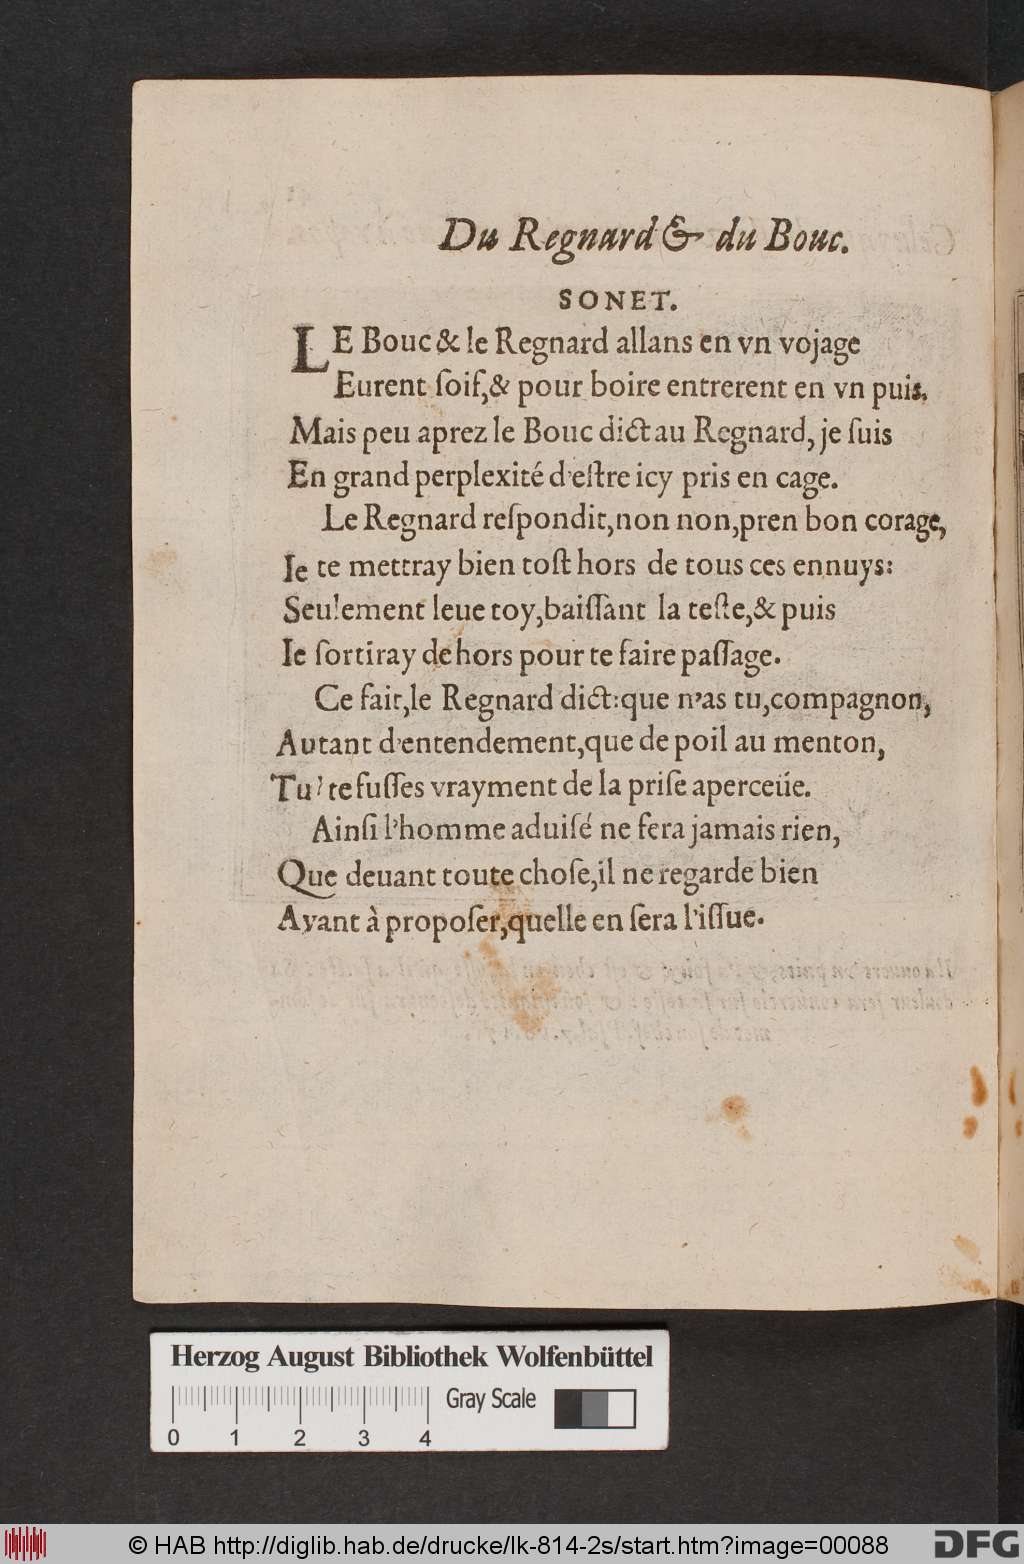 Du Regnard & du Bouc.
SONET.
LE Bouc & le Regnard allans en vn vojage
Eurent ſoif, & pour boire entrerent en vn puis.
Mais peu aprez le Bouc dict au Regnard, je ſuis
En grand perplexité d'eſtre icy pris en cage.
Le Regnard reſpondit, non non, pren bon corage,
Ie te mettray bien toſt hors de tous ces ennuys:
Seulement leue toy, baiſſant la teſte, & puis
Ie ſortiray dehors pour te faire paſſage.
Ce fait, le Regnard dict: que n'as tu, compagnon,
Autant d'entendement, que de poil au menton,
Tu te fuſſes vrayment de la priſe aperceüe.
Ainſi l'homme aduiſé ne fera jamais rien,
Que deuant toute choſe, il ne regarde bien
Ayant à propoſer, quelle en ſera l'iſſue.
Herzog August Bibliothek Wolfenbüttel
Gray Scale
0 1 2 3 4
© HAB http://diglib.hab.de/drucke/lk-814-2s/start.htm?image=00088
DFG